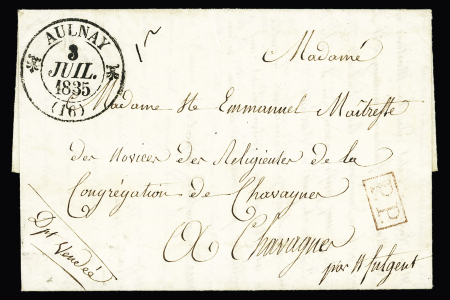 AULNAY
3
JUIL.
1835
(16)
Madame
Madame Ste Emmanuel Maîtresse
des Novices des Religieuses de la
Congrégation de Chavagnes
A Chavagnes
par St fulgent
Dpt Vendée
P.P.